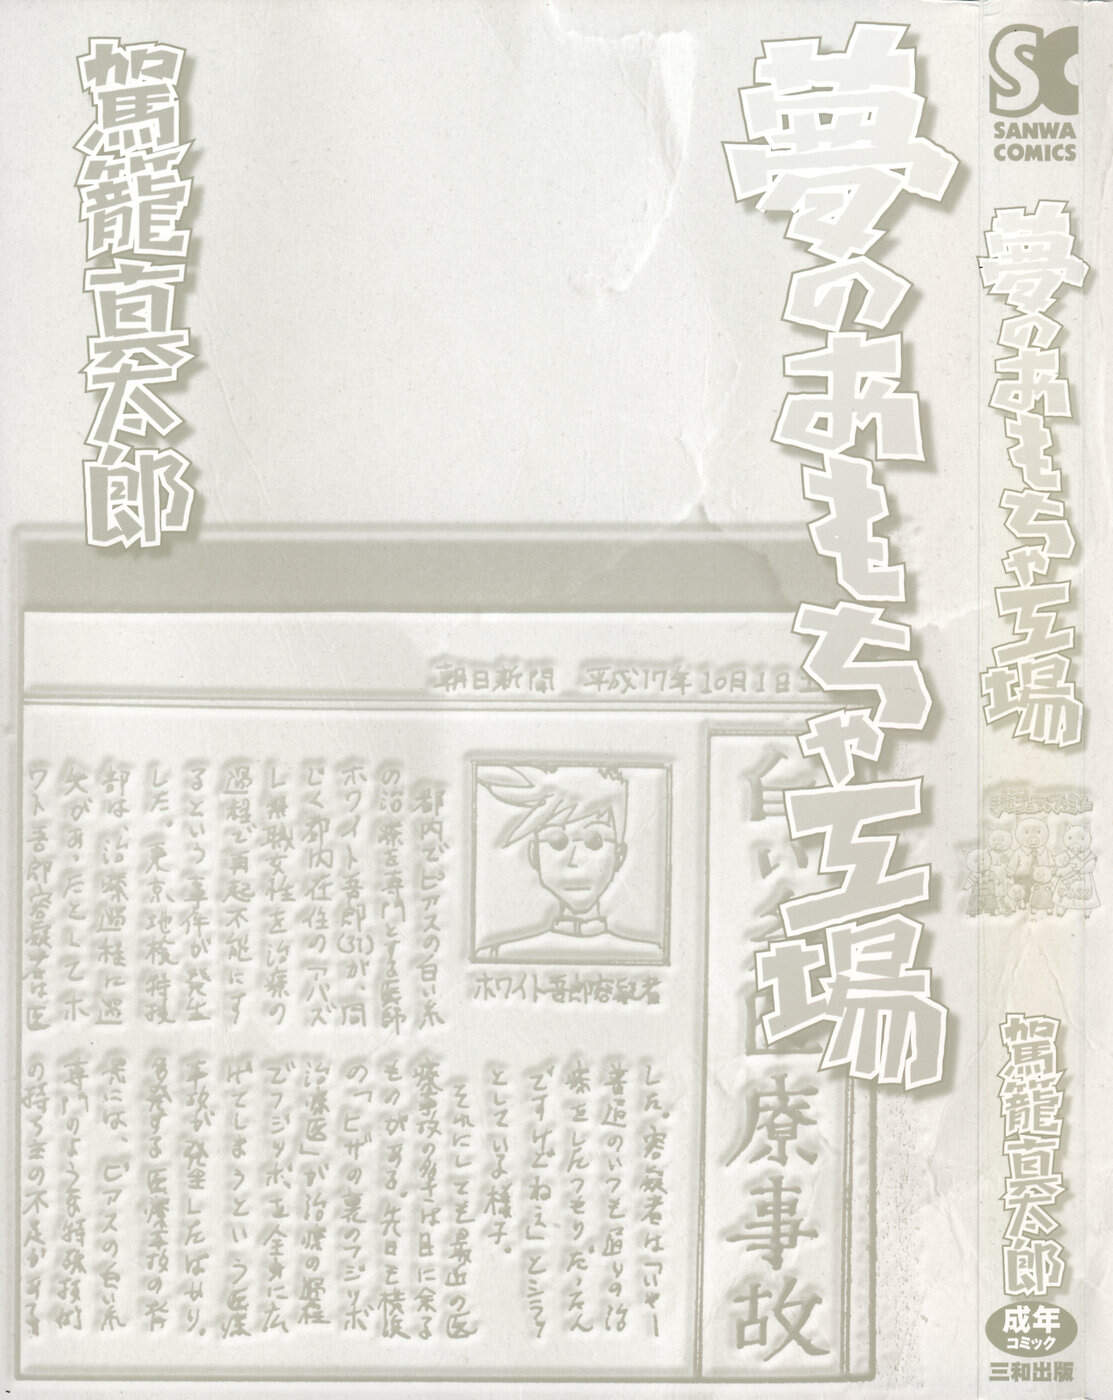 夢のおもちゃ工場
駕籠真太郎
SC
SANWA
COMICS
夢のおもちゃ工場
駕籠真太郎
成年
コミック
三和出版
朝日新聞 平成17年10月1日土
白い糸医療事故
ホワイト吾郎容疑者
都内でピアスの白い糸
の治療を専門とする医師
ホワイト吾郎(31)が、同
じく都内在住のアバズ
レ無職女性を治療の
過程で再起不能にす
るという事件が発生
した。東京地検特捜
部は、治療過程に過
失があったとしてホ
ワイト吾郎容疑者は医
した。容疑者は「いやー
普通のいつも通りの治
療をしたつもりだったん
ですけどねぇ」とシラッ
としている様子。
それにしても最近の医
療事故の多さは目に余る
ものがある。先日も横浜
の「ヒザの裏のフジツボ
治療医」が治療の過程
でフジツボを全身に広
げてしまうという医療
事故が発生したばかり。
多発する医療事故の背
景には、ピアスの白い糸
専門のような特殊技術
の持ち主の不足がある